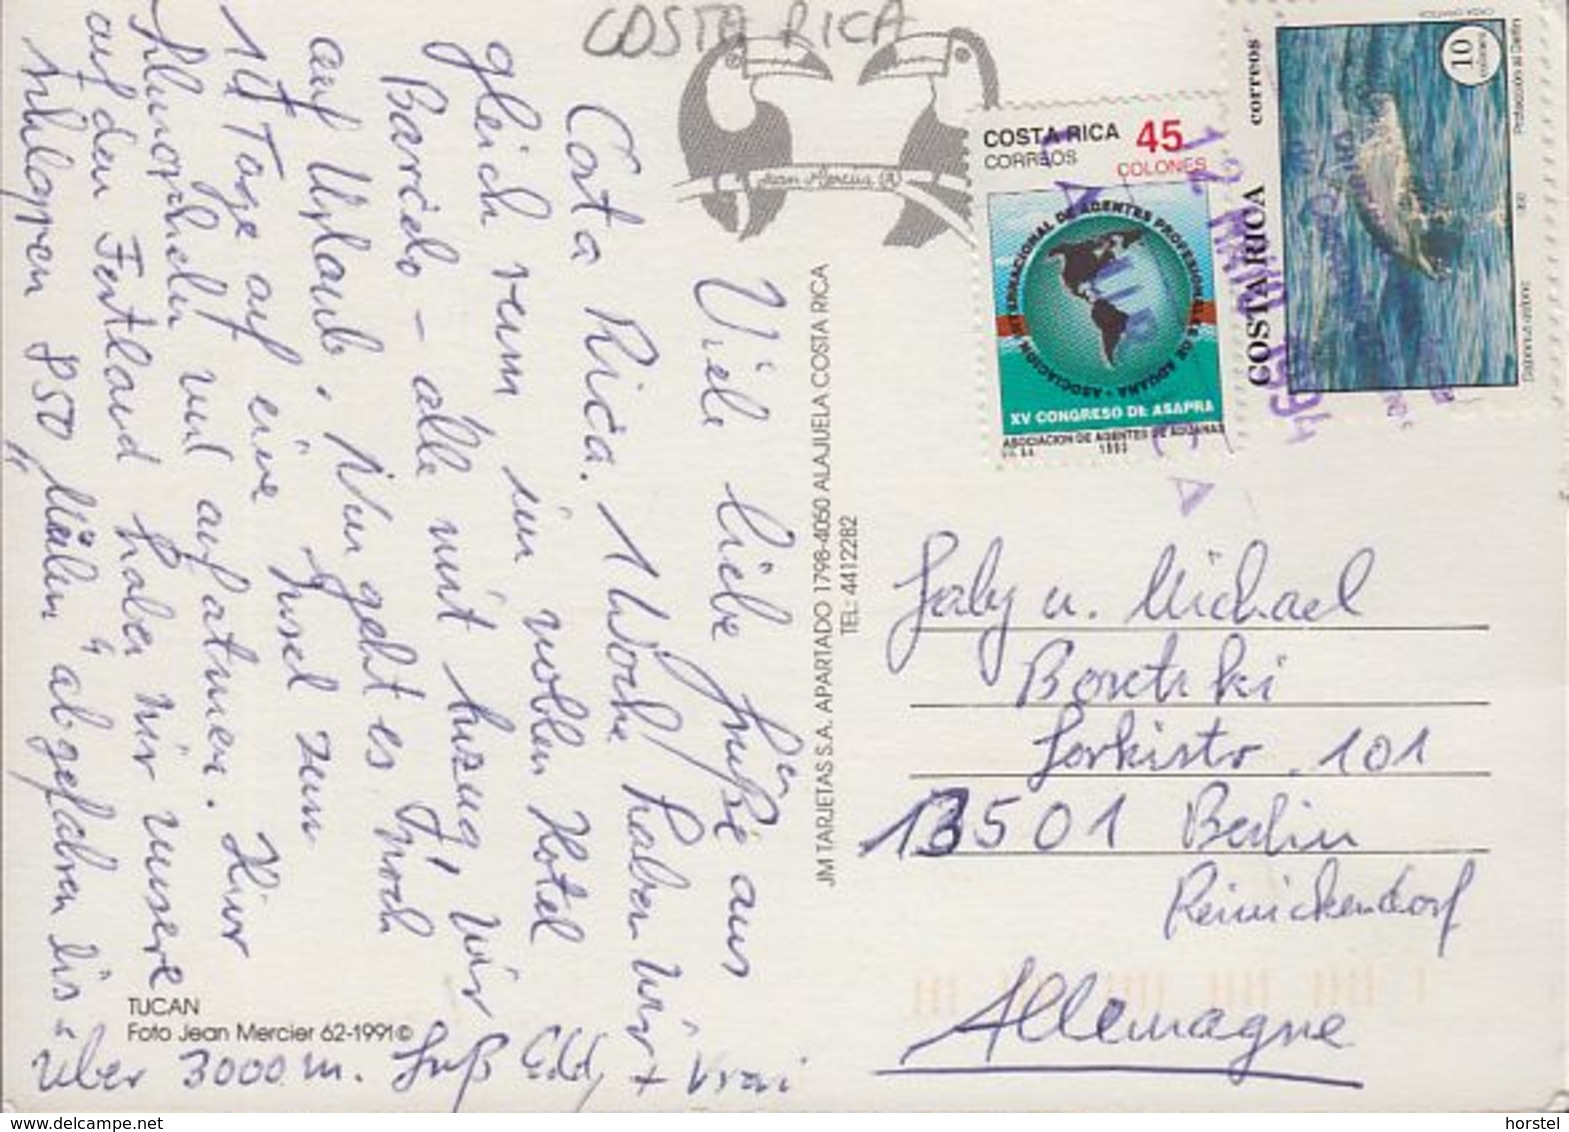 COSTA RICA
Jean Mercier
COSTA RICA 45
CORREOS COLONES
ASOCIACION INTERNACIONAL DE AGENTES PROFESIONALES DE ADUANA
XV CONGRESO DE ASAPRA
ASOCIACION DE AGENTES DE ADUANAS
COSTA RICA correos
10
colones
Protección al Delfín
Viele liebe Grüße aus
Costa Rica. 1 Woche haben wir
gleich rum im noblen Hotel
Barcelo - alle mit Anzug! Wir
auf Urlaub. Nun geht es noch
14 Tage auf eine Insel zum
Schnorcheln und aufatmen. Hier
auf den Festland haben wir unsere
850 Meilen" abgefahren bis
über 3000 m. Gruß Eddy +
JM TARJETAS S.A. APARTADO 1798-4050 ALAJUELA COSTA RICA
TEL: 4412282
TUCAN
Foto Jean Mercier 62-1991©
Gaby u. Michael
101
13501 Berlin
Reinickendorf
Allemagne
www.delcampe.net
horstel